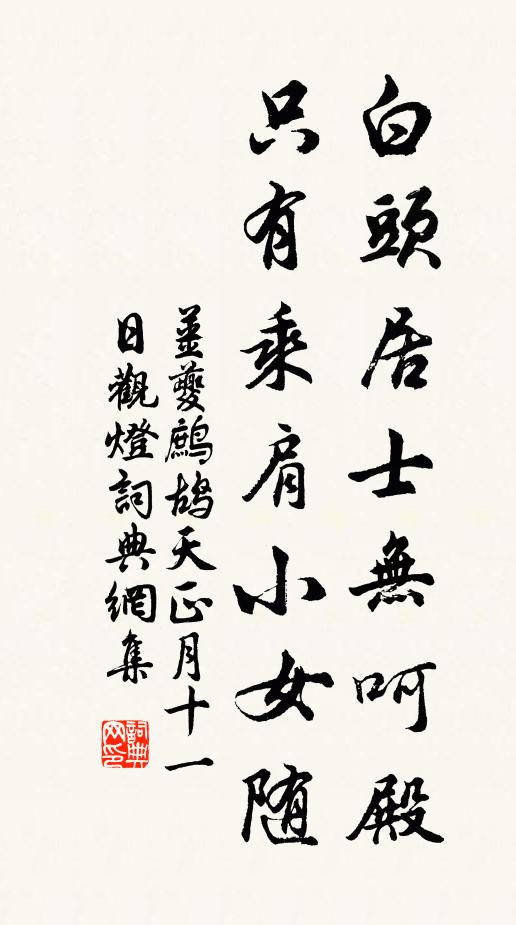 白頭居士無呵殿
只有乘肩小女随
姜夔鷓鴣天正月十一
日觀燈詞典網集
詞典网印